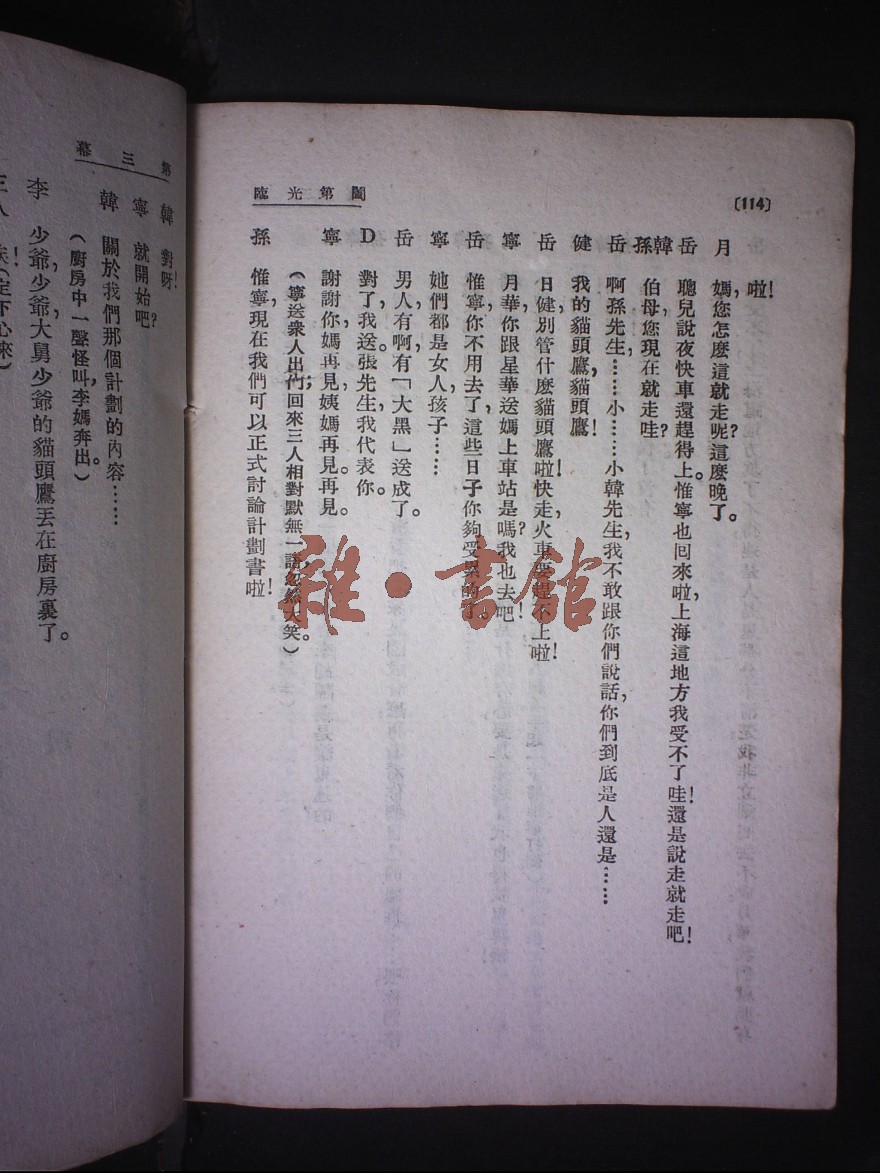 〔114〕
臨光第閫
啦!
月 媽,您怎麼這就走呢?這麼晚了。
岳 聰兒說夜快車還趕得上。惟寧也回來啦,上海這地方我受不了哇!還是說走就走吧!
孫韓 伯母,您現在就走哇?
岳 啊,孫先生,……小……小韓先生,我不敢跟你們說話,你們到底是人還是……
健 我的貓頭鷹,貓頭鷹!
岳 日健,別管什麼貓頭鷹啦!快走,火車要趕不上啦!
寧 月華,你跟星華送媽上車站是嗎?我也去吧!
岳 惟寧,你不用去了,這些日子你夠受累的了。
寧 她們都是女人,孩子……
岳 男人有,啊,有「大黑」送成了。
D 對了,我送。張先生,我代表你。
寧 謝謝你,媽再見,姨媽再見。再見。
(寧送衆人出門;回來三人相對默無一語,忽然大笑。)
孫 惟寧,現在我們可以正式討論計劃書啦!
第三幕
韓 對呀!
寧 就開始吧?
韓 關於我們那個計劃的內容……
(廚房中一聲怪叫,李媽奔出。)
李 少爺,少爺!大舅少爺的貓頭鷹丟在廚房裏了。
三人 (定下心來)
雜·書館